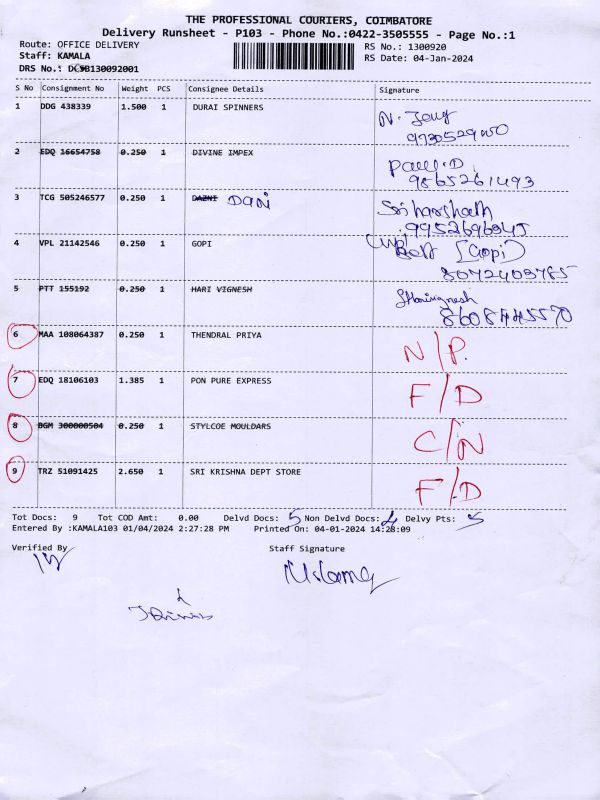 THE PROFESSIONAL COURIERS, COIMBATORE
Delivery Runsheet - P103 - Phone No.:0422-3505555 - Page No.:1
Route: OFFICE DELIVERY RS No.: 1300920
Staff: KAMALA RS Date: 04-Jan-2024
DRS No.: DCSB130092001
S No Consignment No Weight PCS Consignee Details Signature
1 DDG 438339 1.500 1 DURAI SPINNERS
2 EDQ 16654758 0.250 1 DIVINE IMPEX
Paul.D
9865261493
3 TCG 505246577 0.250 1 DAZNI DANI
Sriharshath
9952696945
4 VPL 21142546 0.250 1 GOPI
(Gopi)
8072403785
5 PTT 155192 0.250 1 HARI VIGNESH
8608445570
6 MAA 108064387 0.250 1 THENDRAL PRIYA
N/P.
7 EDQ 18106103 1.385 1 PON PURE EXPRESS
F/D
8 BGM 300000504 0.250 1 STYLCOE MOULDARS
C/N
9 TRZ 51091425 2.650 1 SRI KRISHNA DEPT STORE
F/D
Tot Docs: 9 Tot COD Amt: 0.00 Delvd Docs: 5 Non Delvd Docs: 4 Delvy Pts: 5
Entered By :KAMALA103 01/04/2024 2:27:28 PM Printed On: 04-01-2024 14:28:09
Verified By Staff Signature